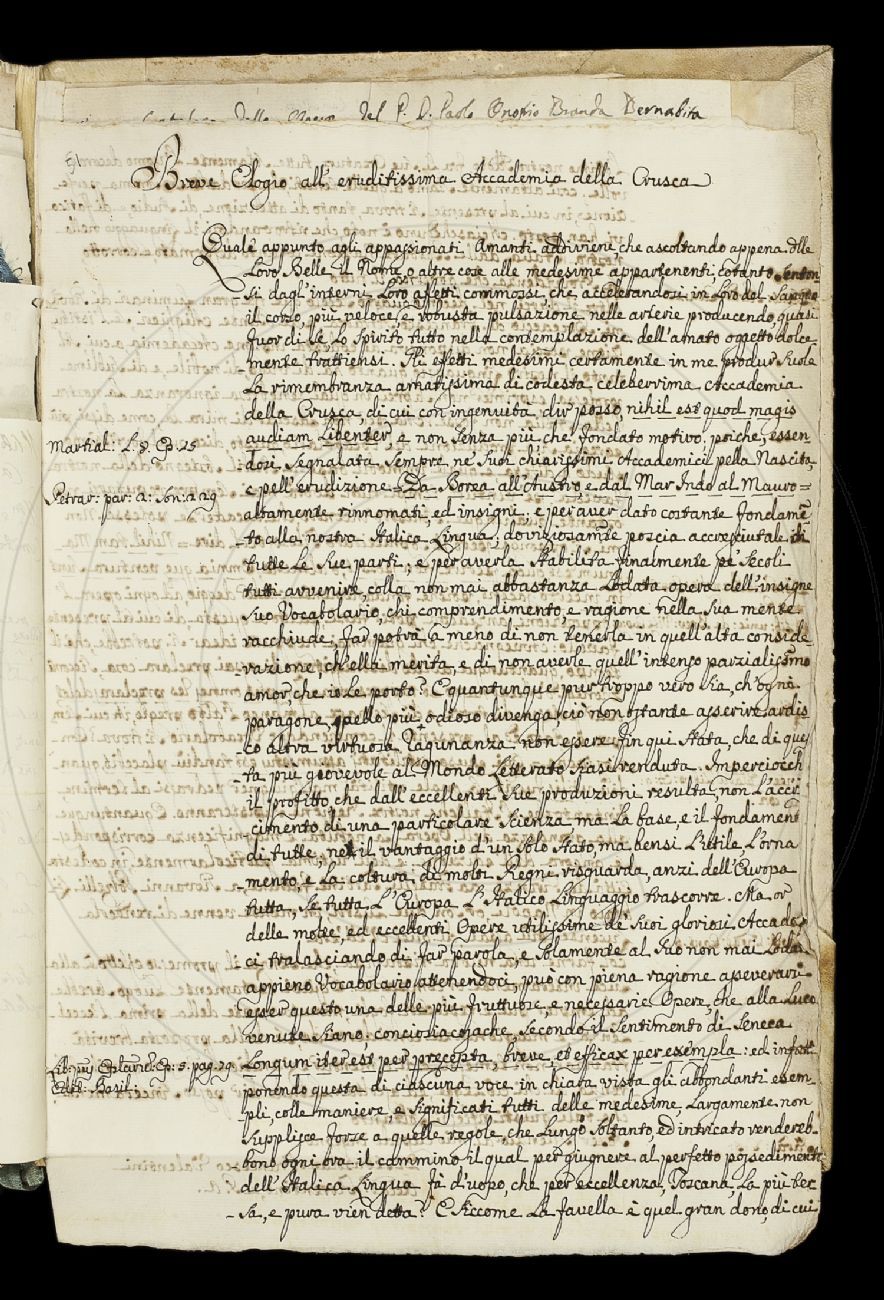 del P. D. Paolo Onofrio Branda Bernabita
51
Breve Elogio all' eruditissima Accademia della Crusca
Quale appunto agli appassionati Amanti addiviene, che ascoltando appena dlle
Loro Belle il Nome, o altre cose alle medesime appartenenti, cotanto senton-
si dagl'interni Loro affetti commossi, che accelerandosi in Loro del Sangue
il corso, più veloce, e robusta pulsazione nelle arterie producendo, quasi
fuor di sè, Lo Spirito tutto nella contemplazione dell'amato oggetto dolce-
mente trattiensi. Gli effetti medesimi certamente in me produr suole
La rimembranza amatissima di codesta celeberrima Accademia
della Crusca, di cui con ingenuità dir posso, nihil est quod magis
audiam Libenter, e non senza più che fondato motivo: poiche, essen-
Martial: L. 8. Ep. 25
dosi segnalata sempre ne' suoi chiarissimi Accademici pella Nascita,
e pell'erudizione = Da Borea all'Austro, e dal Mar Indo al Mauro =
Petrar: par: a: Son: a29
altamente rinnomati, ed insigni; e per aver dato costante fondame-
to alla nostra Italica Lingua; doviziosamte poscia accresciutale di
tutte Le sue parti; e per averla stabilita finalmente pe' Secoli
tutti avvenire, colla non mai abbastanza Lodata opera dell'insigne
suo Vocabolario, chi comprendimento, e ragione nella sua mente
racchiude, far potrà a meno di non tenerla in quell'alta conside-
razione, ch'ella merita, e di non averle quell'intenso parzialissimo
amor, che io Le porto? E quantunque pur troppo vero sia, ch'ogni
paragone, quello più odioso divenga, ciò non ostante asserire ardis-
co altra virtuosa Ragunanza non essere fin qui stata, che di ques-
ta più giovevole al Mondo Letterato siasi renduta. Imperciocch
il profitto, che dall'eccellenti sue produzioni resulta, non L'accre
cimento di una particolare scienza, ma La base, e il fondament
di tutte, ne il vantaggio d'un solo stato, ma bensì L'utile, L'orna-
mento, e La coltura di molti Regni risguarda, anzi dell'Europa
tutta, se tutta L'Europa L'Italico Linguaggio trascorre. Ma or
delle molte, ed eccellenti Opere utilissime de' suoi gloriosi Accade
ci tralasciando di far parola, e solamente al suo non mai Loda
appieno Vocabolario attenendoci, può con piena ragione asseverarsi
esser questo una delle più fruttuose, e necessarie Opere, che alla Luce
venute siano; conciosiacosache, secondo il sentimento di Seneca
Longum iter est per præcepta, breve, et efficax per exempla: ed infatti
Edit: Basil:
ponendo questa di ciascuna voce in chiara vista gli abbondanti esem-
pli, colle maniere, e significati tutti delle medesime, Largamente non
supplisce forze a quelle regole, che Lungo soltanto, ed intricato vendereb-
bono ogni ora il cammino, il qual per giugnere al perfetto possedimento
dell'Italica Lingua fà d'uopo, che per eccellenza, Toscana, La più ter-
sa, e pura vien detta? E siccome La favella è quel gran dono, di cui